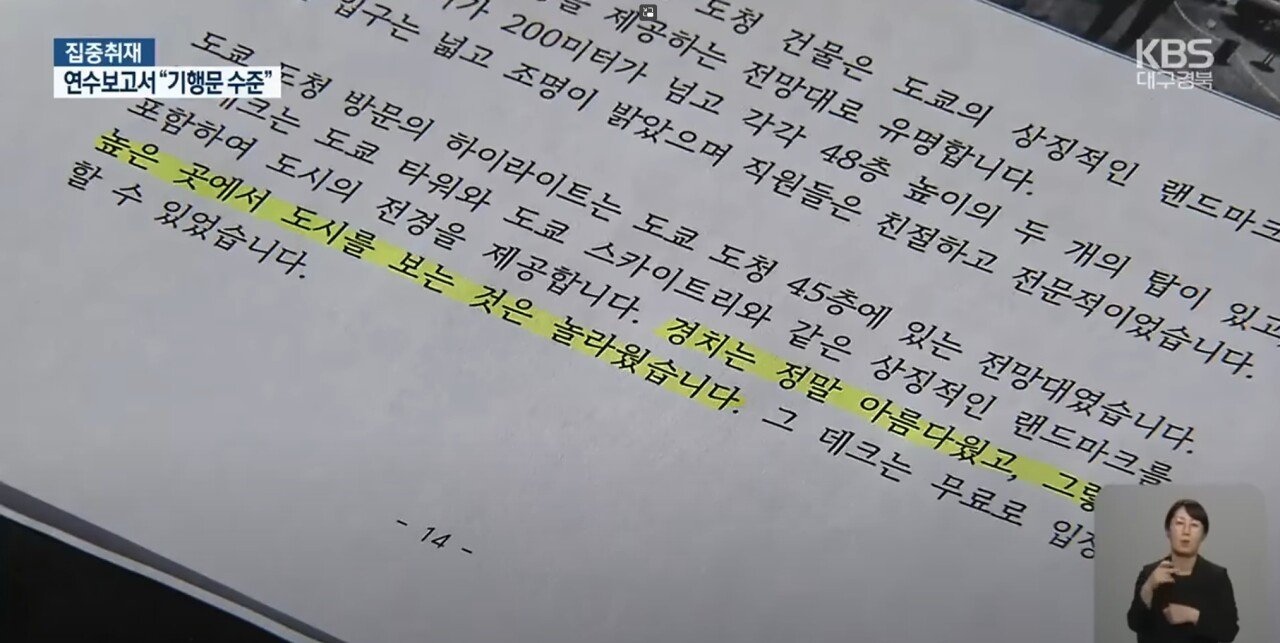 집중취재
연수보고서 “기행문 수준”
KBS
대구경북
도청 건물은 도쿄의 상징적인 랜드마크
제공하는 전망대로 유명합니다.
200미터가 넘고 각각 48층 높이의 두 개의 탑이 있고
입구는 넓고 조명이 밝았으며 직원들은 친절하고 전문적이었습니다.
도쿄 도청 방문의 하이라이트는 도쿄 도청 45층에 있는 전망대였습니다.
데크는 도쿄 타워와 도쿄 스카이트리와 같은 상징적인 랜드마크를
포함하여 도시의 전경을 제공합니다. 경치는 정말 아름다웠고, 그렇
높은 곳에서 도시를 보는 것은 놀라웠습니다. 그 데크는 무료로 입장
할 수 있었습니다.
- 14 -